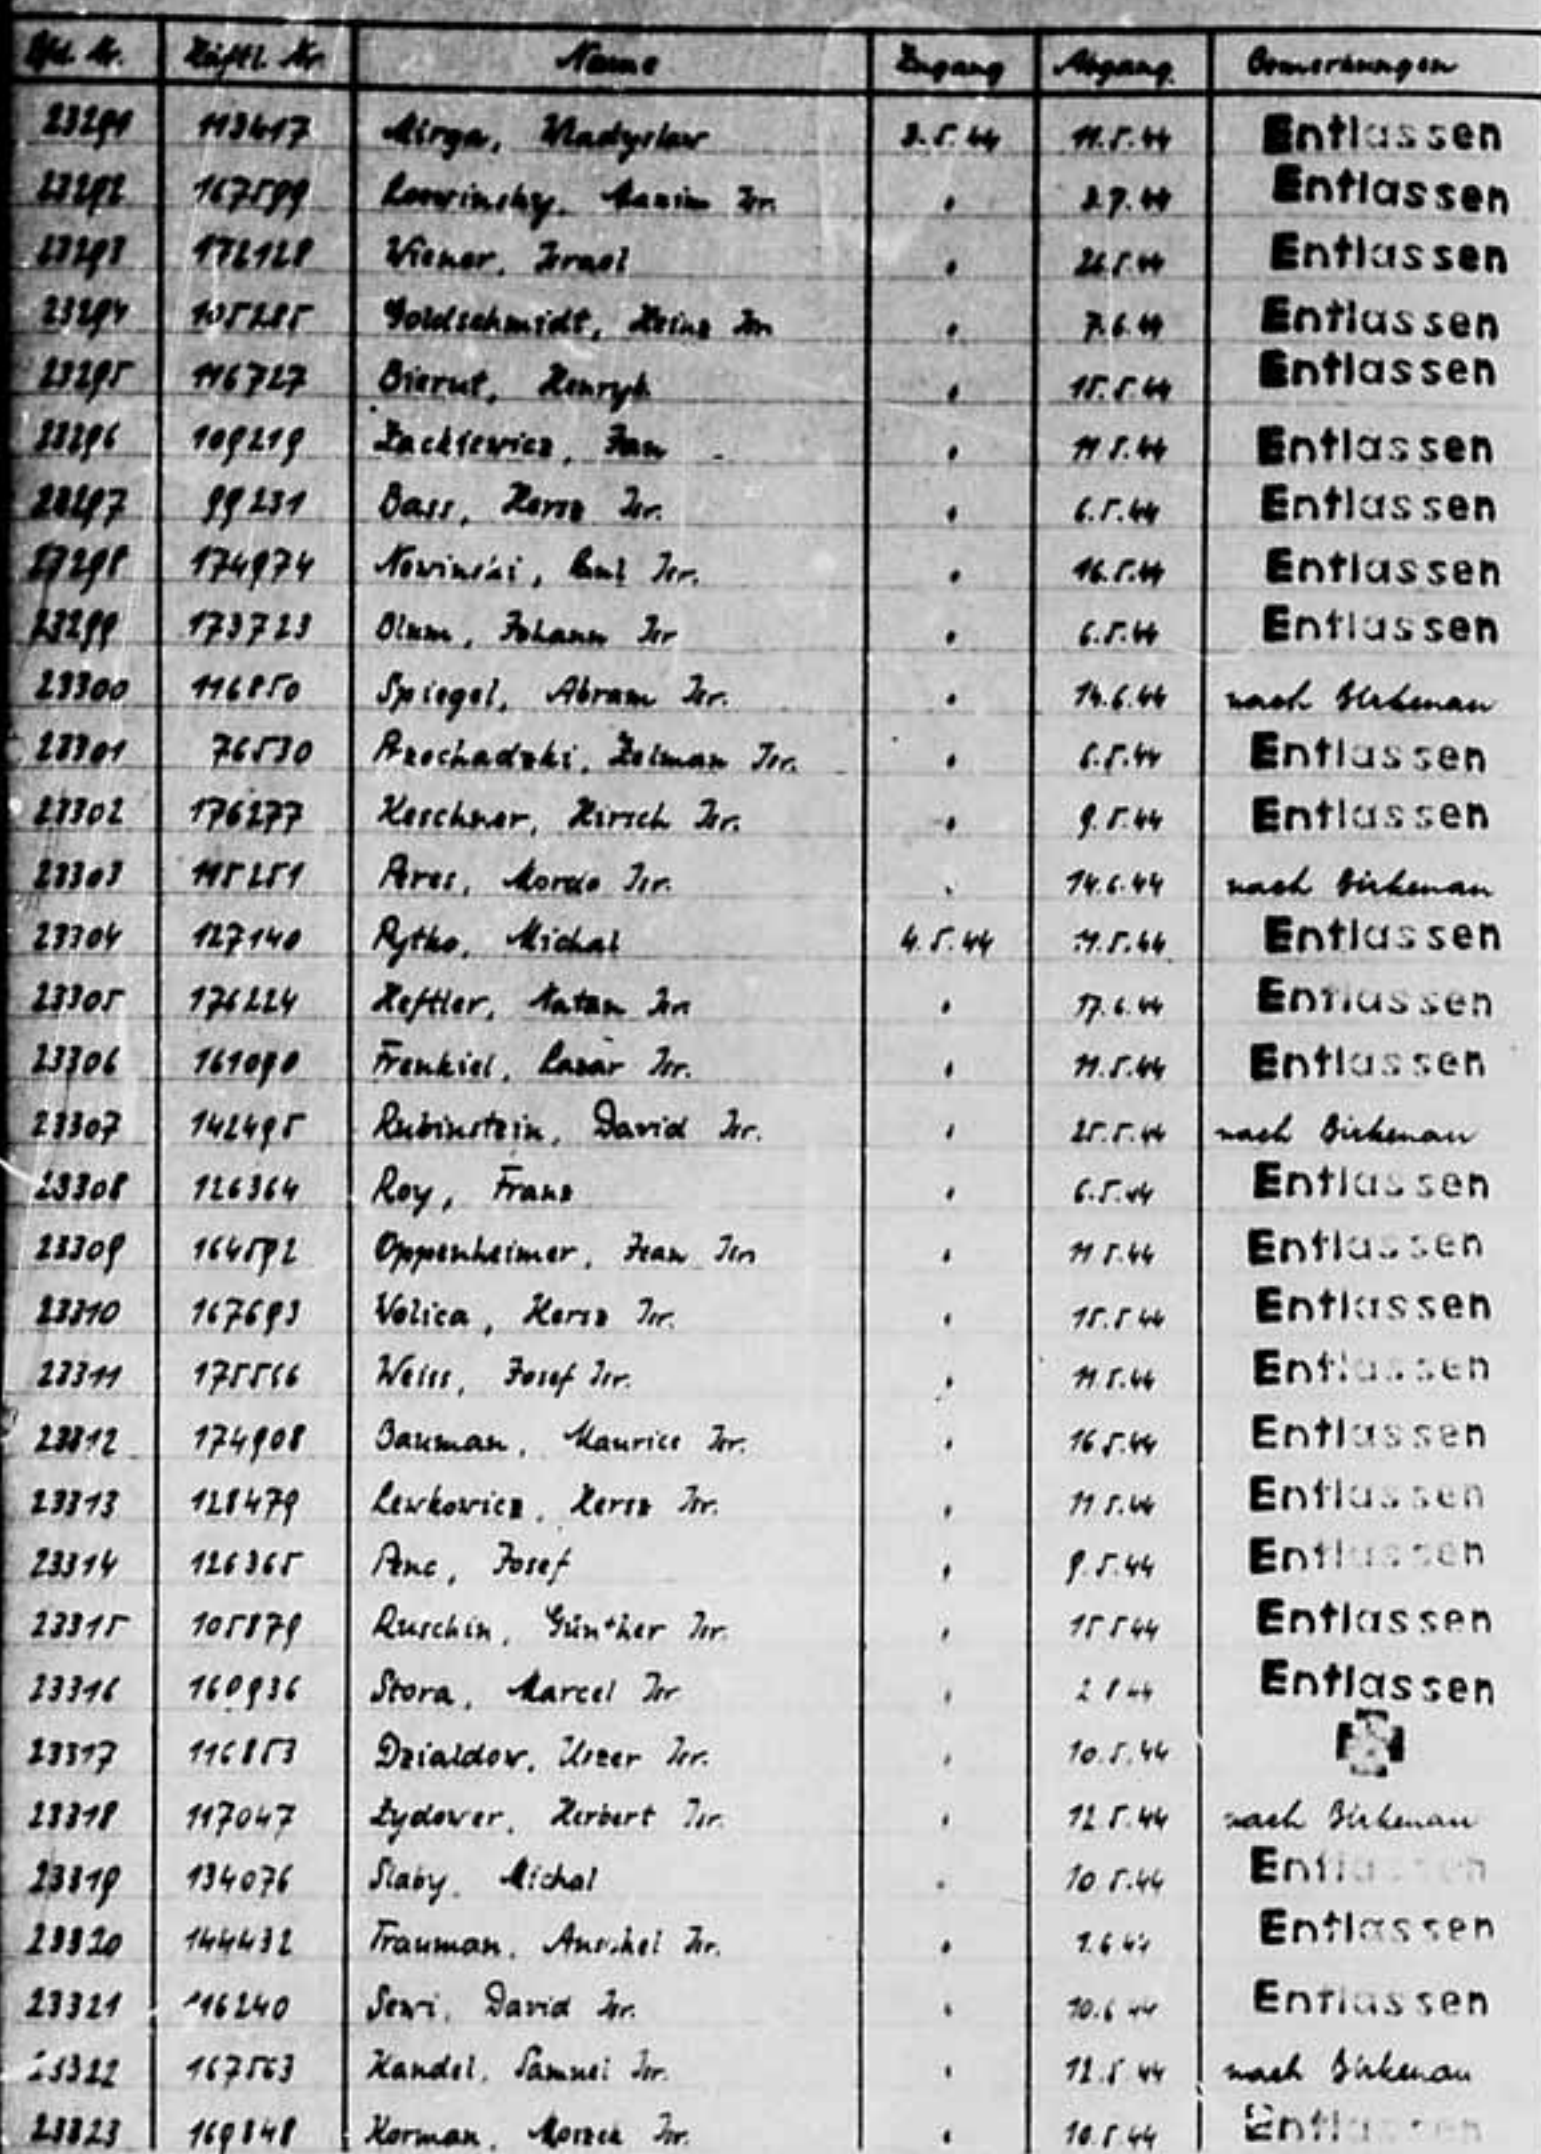 Lfd. Nr. Häftl. Nr. Name Zugang Abgang Bemerkungen
23291 113417 Mirga, Wladyslaw 3.5.44 11.5.44 Entlassen
23292 167599 Isr. " 44 Entlassen
23293 172128 Wiener, Israel " 44 Entlassen
23294 105285 Goldschmidt, Heinz Isr. " 7.6.44 Entlassen
23295 116727 Bierut, Henryk " 15.5.44 Entlassen
23296 109219 Zackiewicz, Jan " 11.5.44 Entlassen
23297 99231 Bass, Hersz Isr. " 6.5.44 Entlassen
23298 174974 Nowinski, Isr. " 16.5.44 Entlassen
23299 173723 Blum, Johann Isr " 6.5.44 Entlassen
23300 116850 Spiegel, Abram Isr. " 14.6.44 nach Birkenau
23301 76530 Zelman Isr. " 6.5.44 Entlassen
23302 176277 Keschner, Hirsch Isr. " 9.5.44 Entlassen
23303 115251 Peres, Isr. " 14.6.44 nach Birkenau
23304 127140 Pytko, Michal 4.5.44 11.5.44 Entlassen
23305 176224 Heftler, Natan Isr. " 17.6.44 Entlassen
23306 161090 Frenkiel, Lazar Isr. " 11.5.44 Entlassen
23307 142495 Rubinstein, David Isr. " 25.5.44 nach Birkenau
23308 126364 Roy, Franz " 6.5.44 Entlassen
23309 164592 Oppenheimer, Jean Isr. " 11.5.44 Entlassen
23310 167693 Wolica, Hersz Isr. " 15.5.44 Entlassen
23311 175566 Weiss, Josef Isr. " 11.5.44 Entlassen
23312 174908 Bauman, Maurice Isr. " 16.5.44 Entlassen
23313 128479 Lewkowicz, Hersz Isr. " 11.5.44 Entlassen
23314 126365 Penc, Josef " 9.5.44 Entlassen
23315 105879 Ruschin, Günther Isr. " 15.5.44 Entlassen
23316 160936 Stora, Marcel Isr " 44 Entlassen
23317 116853 Dzialdow, Uszer Isr. " 10.5.44
23318 117047 Zydower, Herbert Isr. " 12.5.44 nach Birkenau
23319 134076 Slaby, Michal " 10.5.44 Entlassen
23320 144432 Frauman, Anschel Isr. " 1.6.44 Entlassen
23321 116240 Sewi, David Isr. " 10.6.44 Entlassen
23322 167563 Handel, Samuel Isr. " 12.5.44 nach Birkenau
23323 169848 Korman, Isr. " 10.5.44 Entlassen